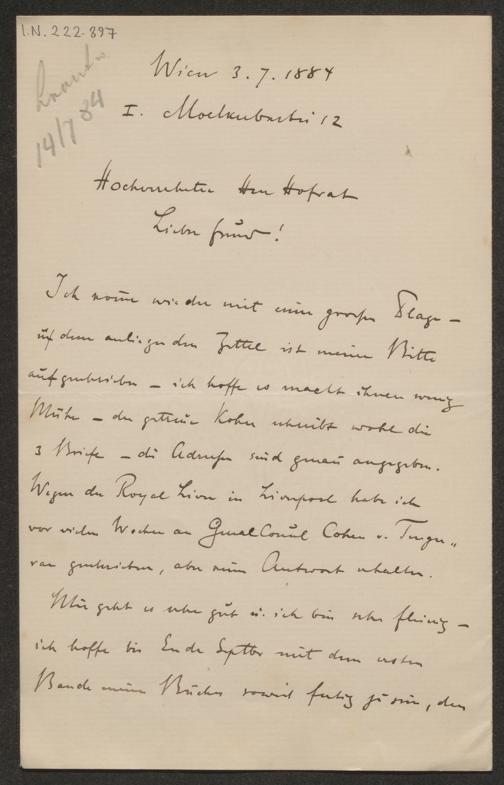 I.N. 222.897
14/7 84
Wien 3.7.1884
I. Moelkerbastei 12
Hochverehrter Herr Hofrat
Lieber Freund!
Ich komme wieder mit einer grossen Plage –
auf dem anliegenden Zettel ist meine Bitte
aufgeschrieben – ich hoffe es macht ihnen wenig
Mühe – der getreue Kohn schreibt wohl die
3 Briefe – die Adressen sind genau angegeben.
Wegen der Royal in Liverpool habe ich
vor vielen Wochen an GeneralConsul Cohen v.
geschrieben, aber keine Antwort erhalten.
Mir geht es sehr gut u. ich bin sehr fleissig –
ich hoffe bis Ende Septbr mit dem ersten
Bande meines Buches soweit fertig zu sein, den